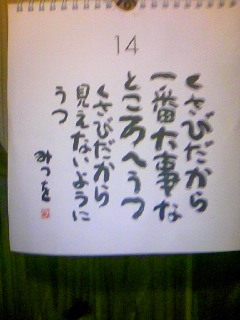 14
くさびだから
一番大事な
ところへうつ
くさびだから
見えないように
うつ
みつを